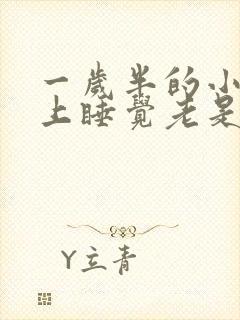 一歲半的小
上睡覺老是
Y立青